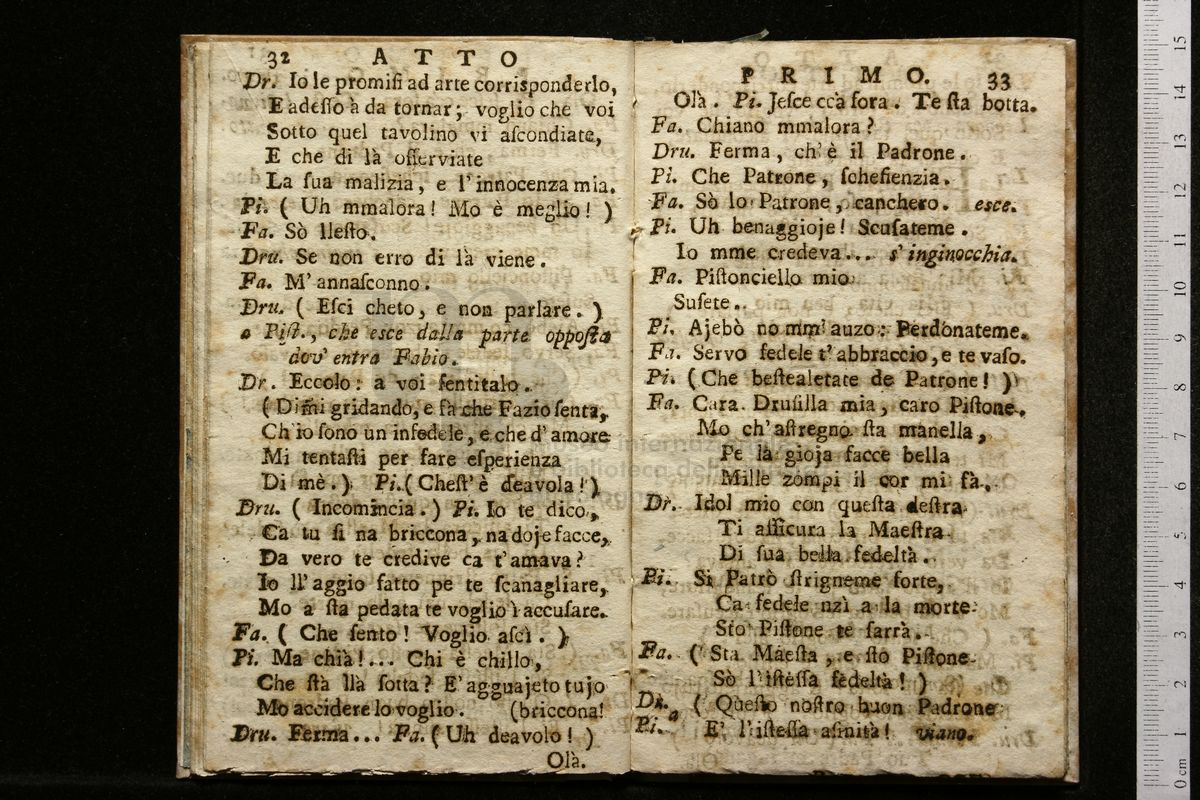 32 ATTO
Dr. Io le promiſi ad arte corriſponderlo,
E adeſſo à da tornar; voglio che voi
Sotto quel tavolino vi aſcondiate,
E che di là oſſerviate
La ſua malizia, e l'innocenza mia.
Pi. ( Uh mmalora! Mo è meglio! )
Fa. Sò lleſto.
Dru. Se non erro di là viene.
Fa. M'annaſconno.
Dru. ( Eſci cheto, e non parlare. )
a Piſt., che eſce dalla parte oppoſta
dov' entra Fabio.
Dr. Eccolo: a voi ſentitalo.
( Dimi gridando, e fà che Fazio ſenta,
Ch'io ſono un infedele, e che d'amore
Mi tentaſti per fare eſperienza
Di mè. ) Pi. ( Cheſt'è deavola! )
Dru. ( Incomincia. ) Pi. Io te dico,
Ca tu ſi na briccona, na doje facce,
Da vero te credive ca t'amava?
Io ll'aggio fatto pe te ſcanagliare,
Mo a ſta pedata te voglio i accuſare.
Fa. ( Che ſento! Voglio aſcì. )
Pi. Ma chià!... Chi è chillo,
Che ſtà llà ſotta? E'agguajeto tujo
Mo accidere lo voglio. (briccona!
Dru. Ferma... Fa. ( Uh deavolo! )
Olà.
PRIMO. 33
Olà. Pi. Jeſce ccà fora. Te ſta botta.
Fa. Chiano mmalora?
Dru. Ferma, ch'è il Padrone.
Pi. Che Patrone, ſcheſienzia.
Fa. Sò lo Patrone, canchero. eſce.
Pi. Uh benaggioje! Scuſateme.
Io mme credeva... s'inginocchia.
Fa. Piſtonciello mio
Suſete..
Pi. Ajebò no mm'auzo: Perdonateme.
Fa. Servo fedele t'abbraccio, e te vaſo.
Pi. ( Che beſtealetate de Patrone! )
Fa. Cara Druſilla mia, caro Piſtone,
Mo ch'aſtregno ſta manella,
Pe la gioja facce bella
Mille zompi il cor mi fà.
Dr. Idol mio con queſta deſtra
Ti aſſicura la Maeſtra
Di ſua bella fedeltà.
Pi. Si Patrò ſtrigneme forte,
Ca fedele nzì a la morte
Sto Piſtone te ſarrà.
Fa. ( Sta Maeſta, e ſto Piſtone
Sò l'iſteſſa fedeltà! )
Dr. ( Queſto noſtro buon Padrone
Pi. a E' l'iſteſſa aſinità! viano.